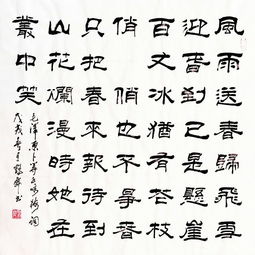 風雨送春歸飛雪
迎春到已是懸崖
百丈冰猶有花枝
俏俏也不爭春
只把春來報待到
山花爛漫時她在
叢中笑
毛澤東卜算子咏梅詞
戊戌書